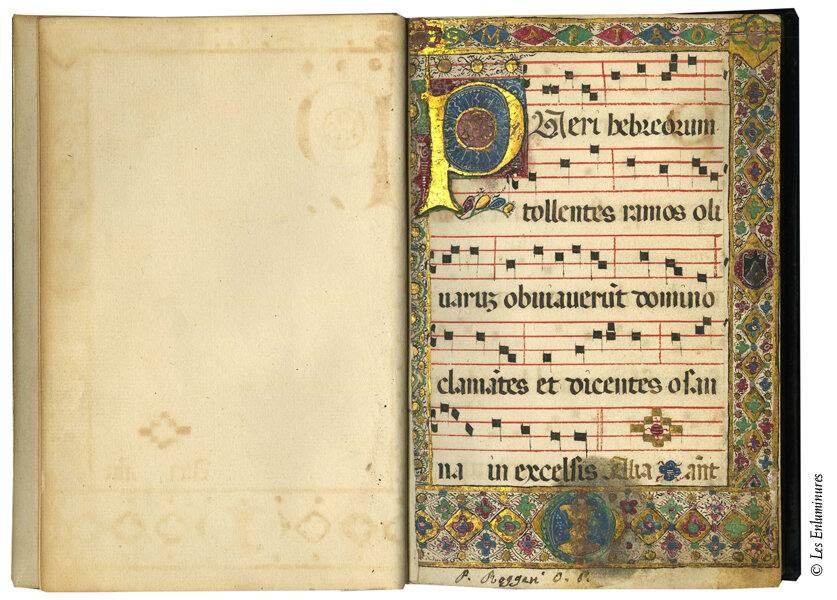 Pueri hebreorum
tollentes ramos oli
uaruz obuiauerūt domino
clamātes et dicentes osan
na in excelsis Alia ānt
© Les Enluminures